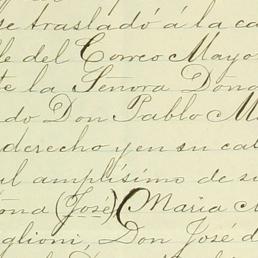 se trasladó á la ca
lle del Correo Mayo
te la Señora Doña
do Don Pablo M
derecho y en su cal
ral amplísimo de su
oma (José) Maria
glioni, Don José d